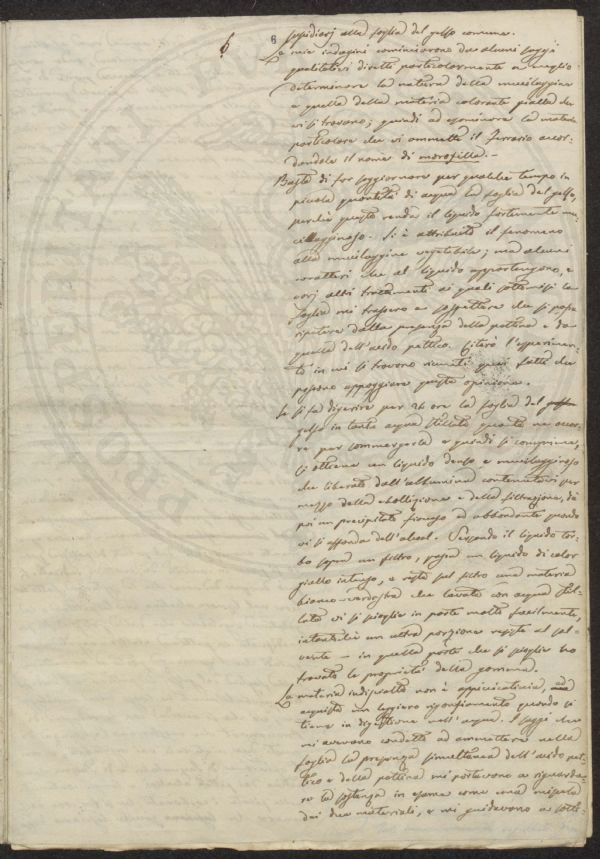 6 6
sussidiarj alla foglia del gelso comune.
Le mie indagini cominciarono da alcuni saggi
qualitativi diretti particolarmente a meglio
determinare la natura della mucilaggine
e quella della materia colorante gialla che
vi si trovano; quindi ad esaminare la materia
particolare che vi ammette il Ferrario accor-
dandole il nome di morofilla.—
Basta di far soggiornare per qualche tempo in
piccola quantità di acqua la foglia del gelso,
perchè questa renda il liquido fortemente mu-
cillagginoso. Si è attribuito il fenomeno
alla mucilaggine vegetabile; ma alcuni
caratteri che al liquido appartengono, e
varj altri trattamenti ai quali sottomisi la
foglia mi trassero a sospettare che si possa
ripetere dalla presenza della pectina e da
quella dell'acido pettico. Citerò l'esperimen-
to in cui si trovano riuniti quei fatti che
possono appoggiare questa opinione.
Se si fa digerire per 24 ore la foglia del
gelso in tanta acqua stillata quanta ne occor-
re per sommergerla e quindi si comprime,
si ottiene un liquido denso e mucilagginoso
che liberato dall'albumina contenutavi per
mezzo della ebollizione e della filtrazione, dà
poi un precipitato fioccoso ed abbondante quando
vi si affonda dell'alcool. Versando il liquido tor-
bo sopra un filtro, passa un liquido di color
giallo intenso, e resta sul filtro una materia
bianco-verdastra che lavata con acqua stil-
lata vi si scioglie in parte molto facilmente,
intantochè un'altra porzione resiste al sol-
vente — in quella parte che si scioglie ho
trovato le proprietà della gomma.
La materia indisciolta non è appiccicaticcia, ma
acquista un leggiero rigonfiamento quando si
tiene in digestione nell'acqua. I saggi che
mi avevano condotto ad ammettere nella
foglia la presenza simultanea dell'acido pet-
tico e della pectina mi portavano a riguarda-
re la sostanza in esame come una miscela
dei due materiali, e mi guidavano a sotto-